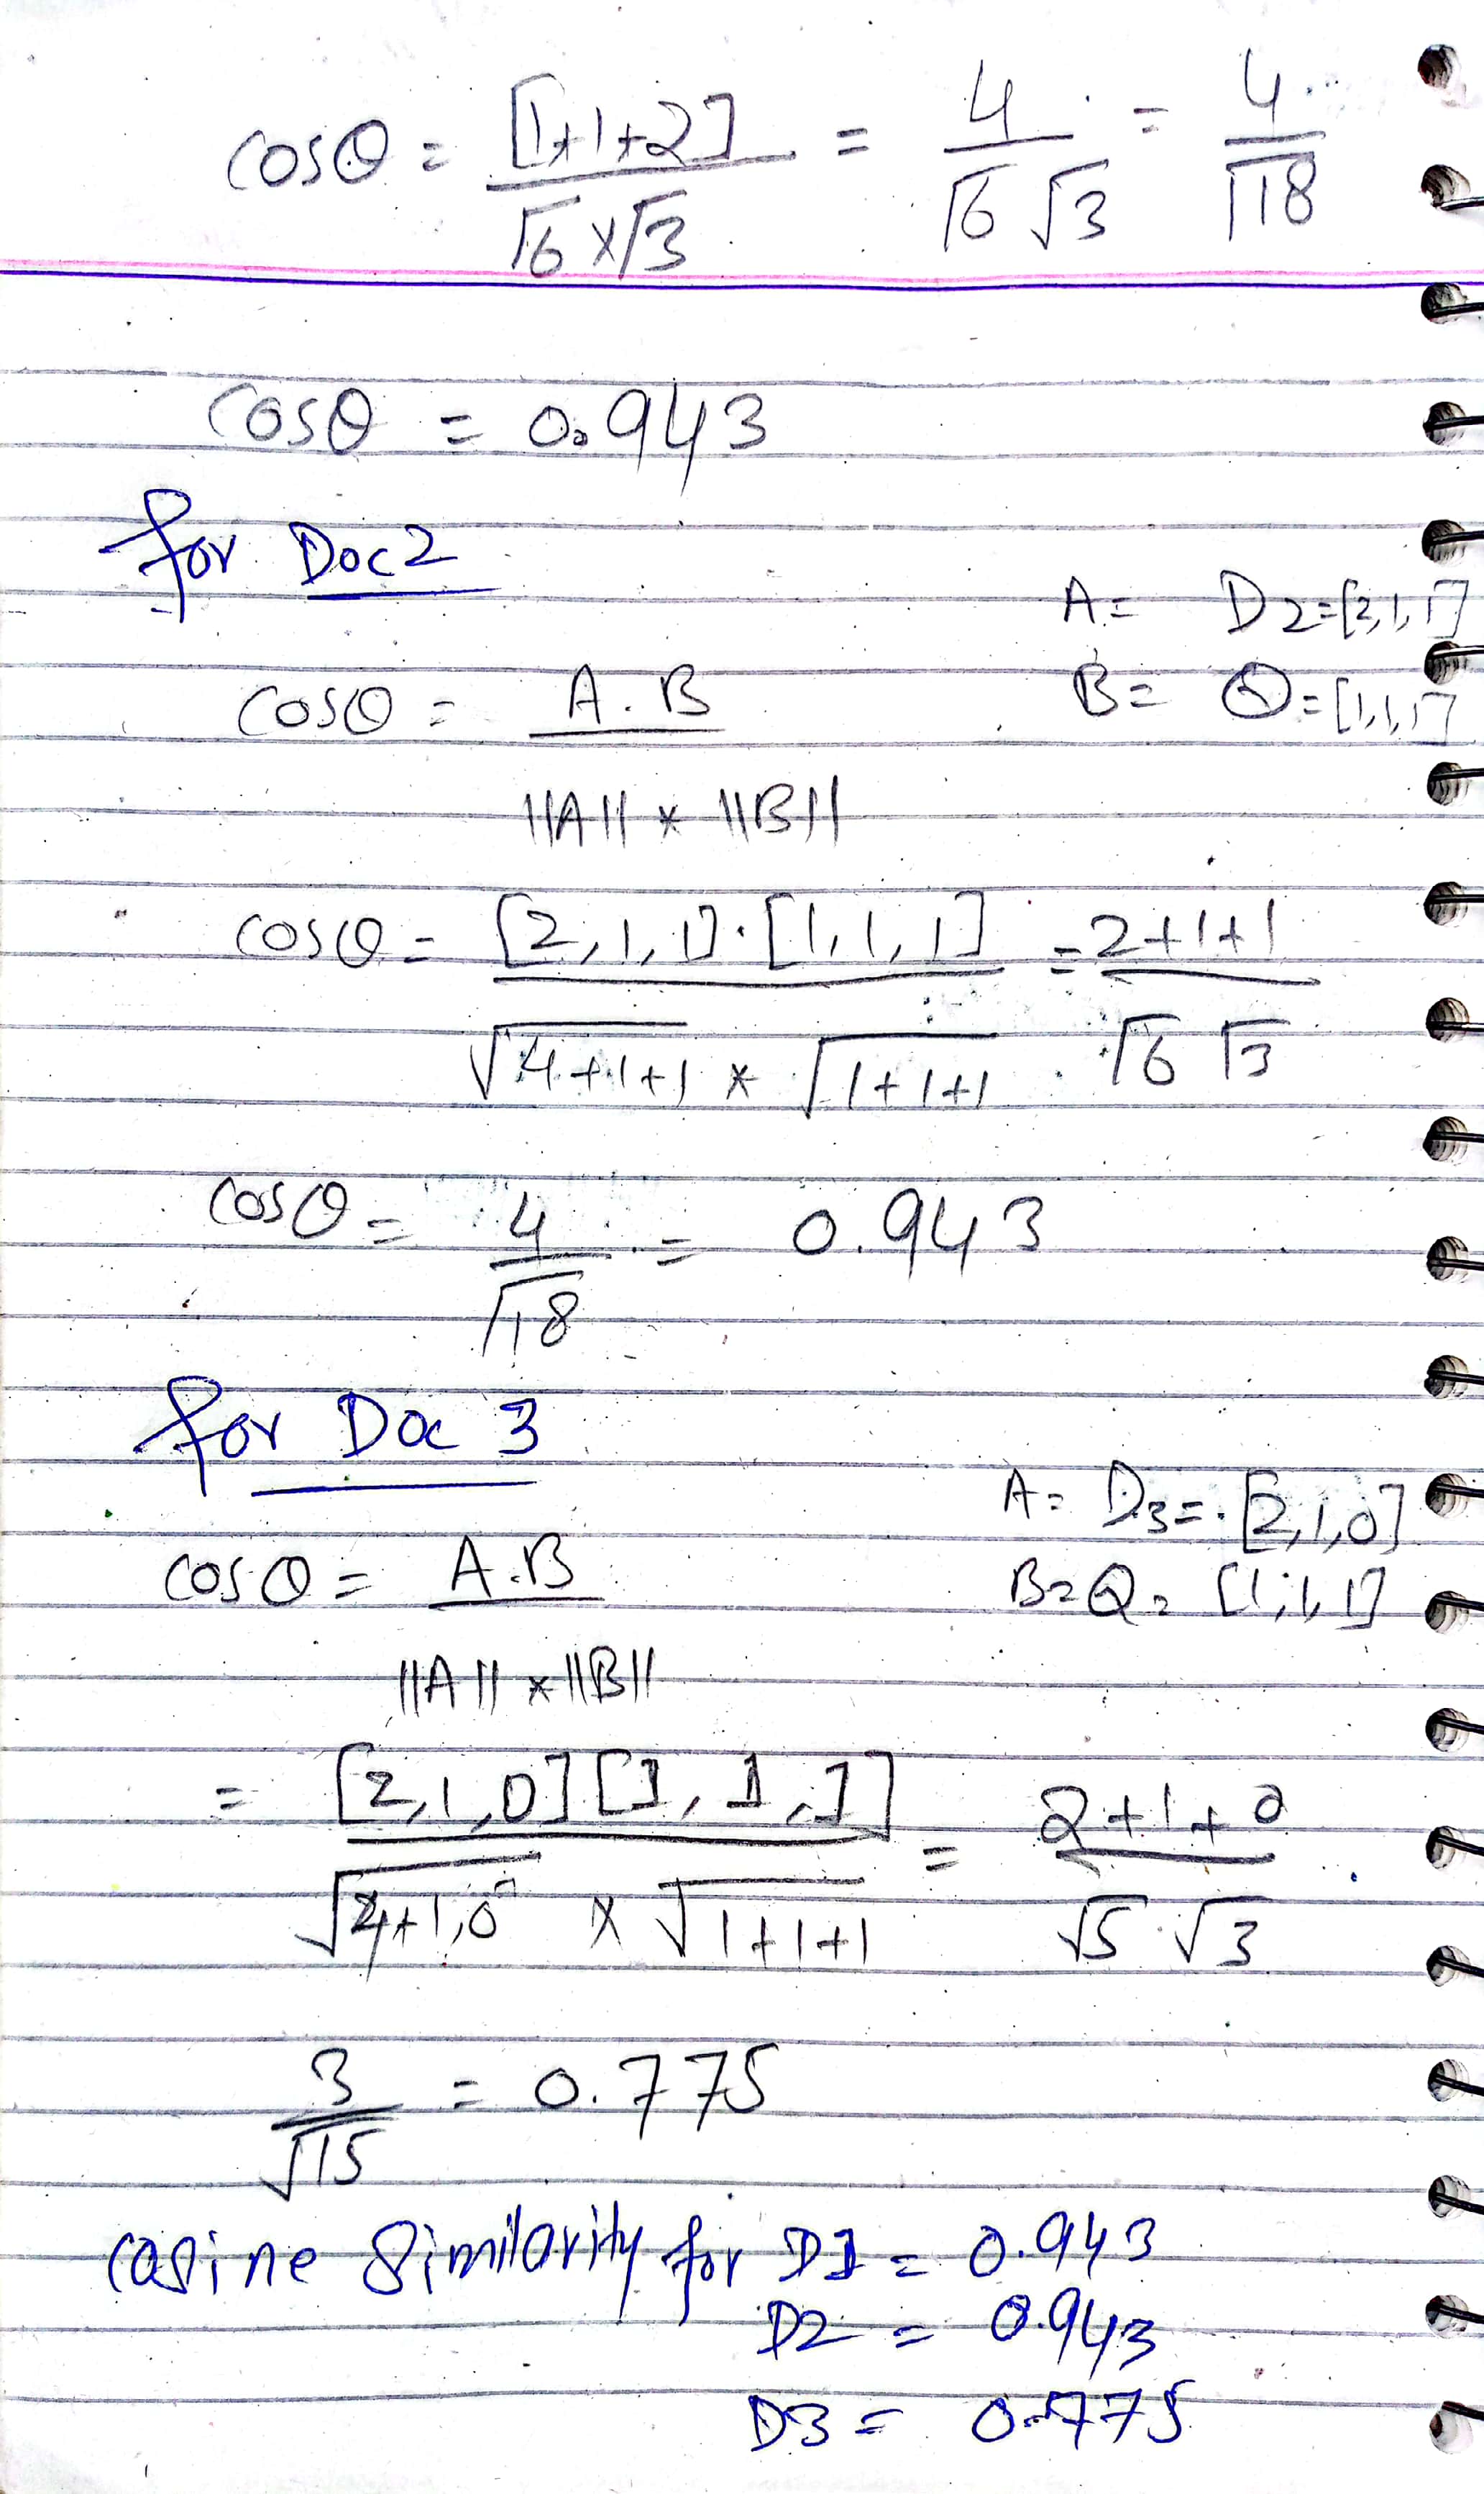 cosθ = [1+1+2] / √6 x √3 = 4 / √6 √3 = 4 / √18
cosθ = 0.943
for Doc2
A = D2=[2,1,1]
B = Q=[1,1,1]
cosθ = A.B / ||A|| * ||B||
cosθ = [2,1,1].[1,1,1] / √4+1+1 * √1+1+1 = 2+1+1 / √6 √3
cosθ = 4 / √18 = 0.943
for Doc 3
A = D3 = [2,1,0]
B = Q = [1,1,1]
cosθ = A.B / ||A|| * ||B||
= [2,1,0] [1,1,1] / √4+1,0 x √1+1+1 = 2+1+0 / √5 . √3
3 / √15 = 0.775
cosine Similarity for D1 = 0.943
D2 = 0.943
D3 = 0.775